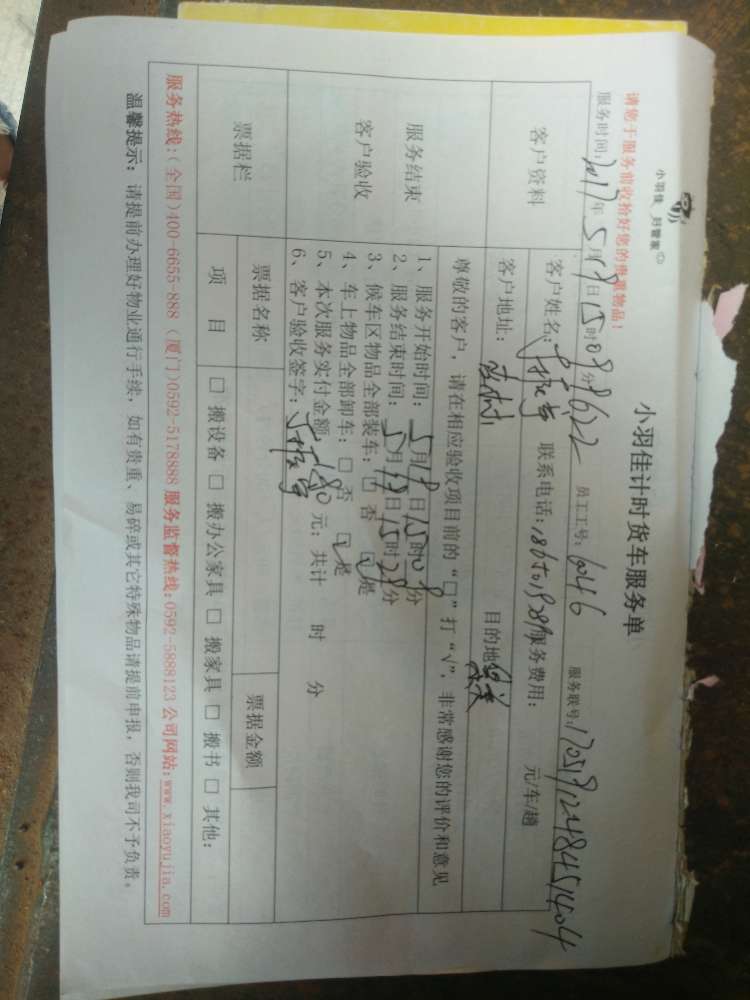 小羽佳 好管家
小羽佳计时货车服务单
请您于服务前收拾好您的贵重物品!
服务时间:2017年5月19日15时08分 8622 员工工号:6046 服务联号:
客户资料
客户姓名: 联系电话: 服务费用: 元/车/趟
客户地址: 目的地
尊敬的客户,请在相应验收项目前的“□”打“√”,非常感谢您的评价和意见
服务结束
客户验收
1、服务开始时间:5月19日15时08分
2、服务结束时间:5月19日15时28分
3、候车区物品全部装车:□ 否 ☑ 是
4、车上物品全部卸车:□ 否 ☑ 是
5、本次服务实付金额 180 元;共计 时 分
6、客户验收签字:
票据栏
票据名称 票据金额
项 目 □ 搬设备 □ 搬办公家具 □ 搬家具 □ 搬书 □ 其他:
服务热线:(全国)400-6655-888 (厦门)0592-5178888 服务监督热线:0592-5888123 公司网站:www.xiaoyujia.com
温馨提示:请提前办理好物业通行手续,如有贵重、易碎或其它特殊物品请提前申报,否则我司不予负责。